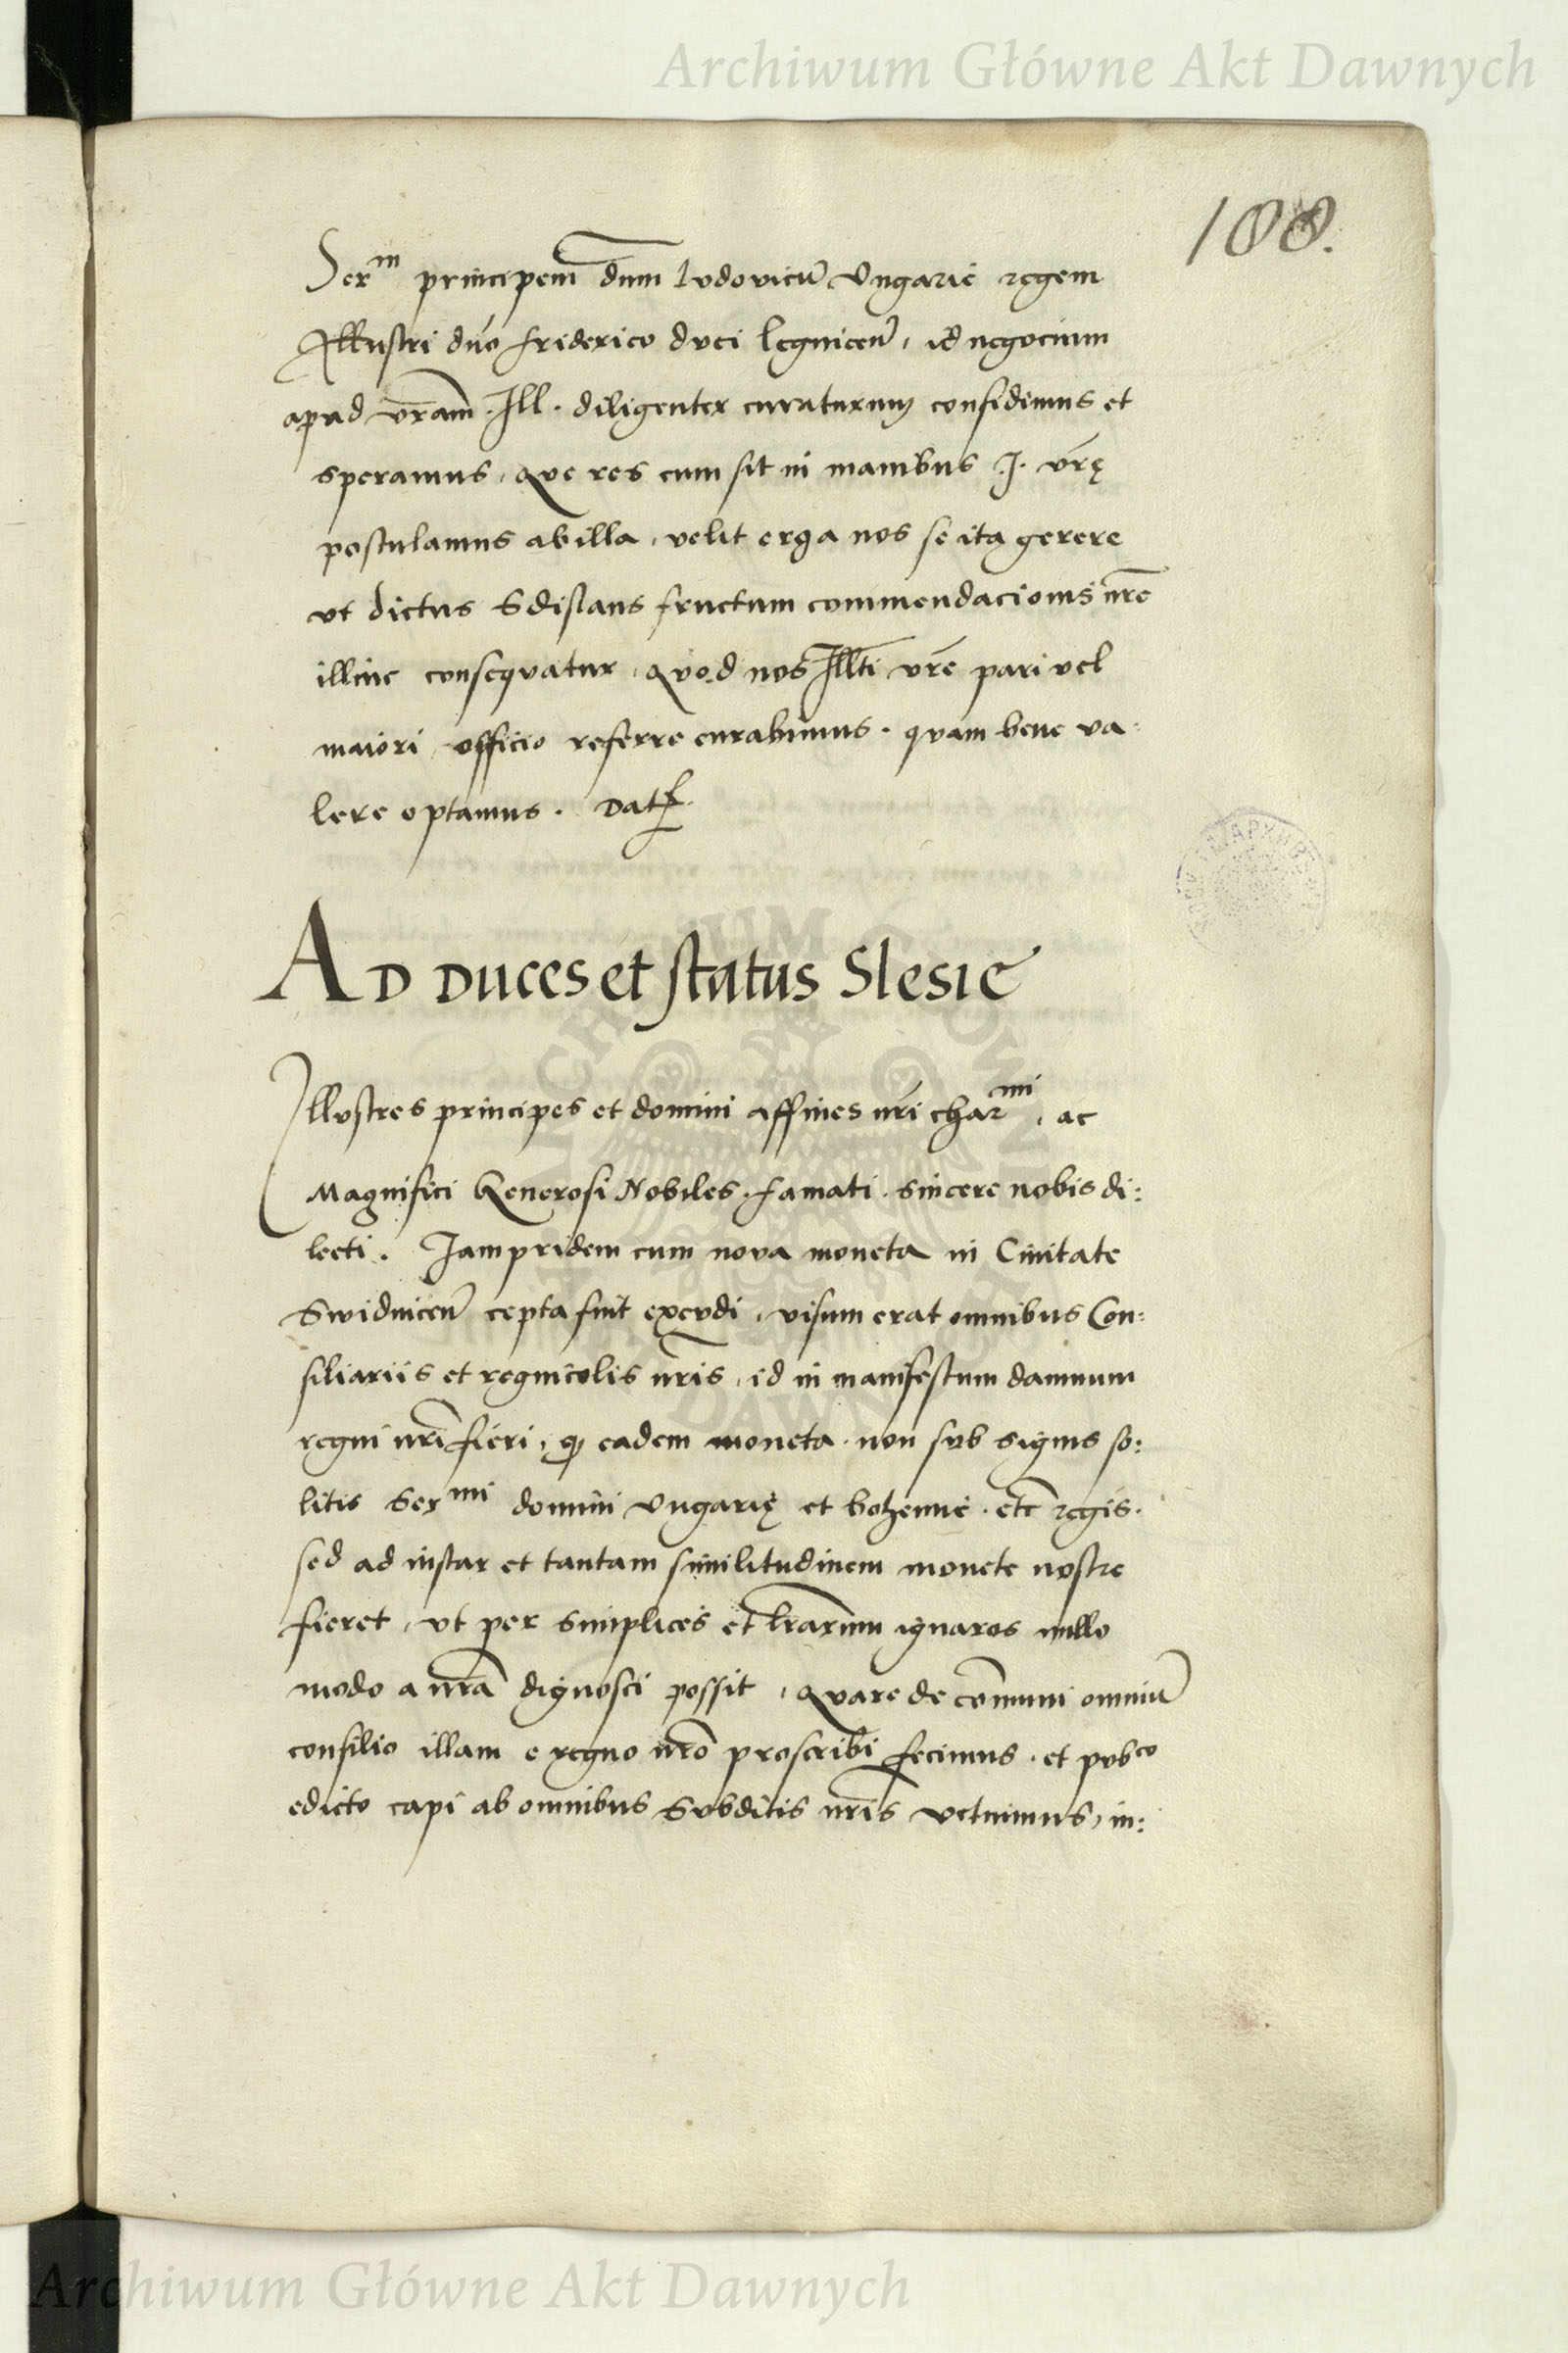 Archiwum Główne Akt Dawnych
100.
Ser^m principem dnm Ludovicū Ungarie regem
Illustri dno Friderico duci legnicen̄, id negocium
apud vram . Ill . diligenter curaturum confidimus et
speramus, Que res cum sit in manibus .I. vrę
postulamus ab illa, velit erga nos se ita gerere
ut dictus Sdislaus fructum commendacionis nre
illinc consequatur, Quod nos Illti vre pari vel
maiori officio referre curabimus . quam bene va:
lere optamus . Dat
AD Duces et status Slesie
Illustres principes et domini affines nri char^mi, ac
Magnifici Generosi Nobiles . famati . sincere nobis di:
lecti . Iampridem cum nova moneta in Civitate
Swidnicen̄ cepta fuit excudi, visum erat omnibus Con:
siliariis et regnicolis nris, id in manifestum damnum
regni nri fieri, q eadem moneta . non sub signis so:
litis Ser^mi domini Ungarię et bohemie . etc regis .
sed ad instar et tantam similitudinem monete nostre
fieret, ut per simplices et lrarum ignaros nullo
modo a nra dignosci possit, Quare de cōmuni omniū
consilio illam e regno nro proscribi fecimus . et pub^co
edicto capi ab omnibus Subditis nris vetuimus, in:
Archiwum Główne Akt Dawnych